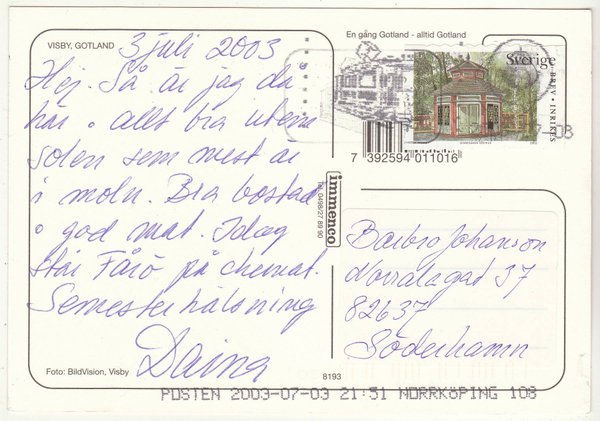 VISBY, GOTLAND
3 juli 2003
Hej. Så är jag då
här o allt bra utom
solen som mest är
i moln. Bra bostad
o god mat. Idag
står Fårö på schemat.
Semesterhälsning
Daina
Foto: BildVision, Visby
En gång Gotland - alltid Gotland
Sverige
BREV • INRIKES
7 392594 011016
immenco
Tel. 0498/27 89 90
Barbro Johanson
Norralagat 37
82637
Söderhamn
8193
POSTEN 2003-07-03 21:51 NORRKÖPING 108